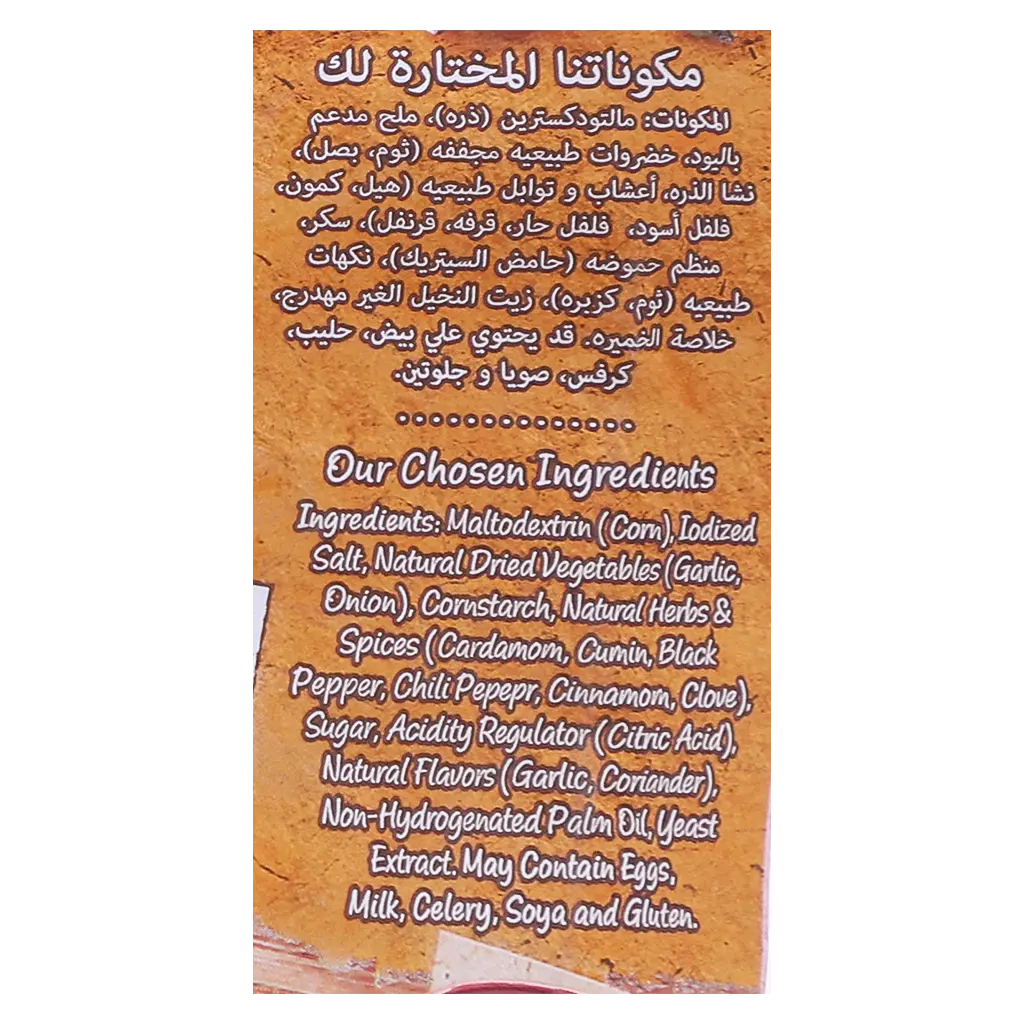 مكوناتنا المختارة لك
المكونات: مالتودكسترين (ذره)، ملح مدعم
باليود، خضروات طبيعيه مجففه (ثوم، بصل)،
نشا الذره، أعشاب و توابل طبيعيه (هيل، كمون،
فلفل أسود، فلفل حار، قرفه، قرنفل)، سكر،
منظم حموضه (حامض السيتريك)، نكهات
طبيعيه (ثوم، كزبره)، زيت النخيل الغير مهدرج،
خلاصة الخميره. قد يحتوي علي بيض، حليب،
كرفس، صويا و جلوتين.
Our Chosen Ingredients
Ingredients: Maltodextrin (Corn), Iodized
Salt, Natural Dried Vegetables (Garlic,
Onion), Cornstarch, Natural Herbs &
Spices (Cardamom, Cumin, Black
Pepper, Chili Pepepr, Cinnamom, Clove),
Sugar, Acidity Regulator (Citric Acid),
Natural Flavors (Garlic, Coriander),
Non-Hydrogenated Palm Oil, Yeast
Extract. May Contain Eggs,
Milk, Celery, Soya and Gluten.